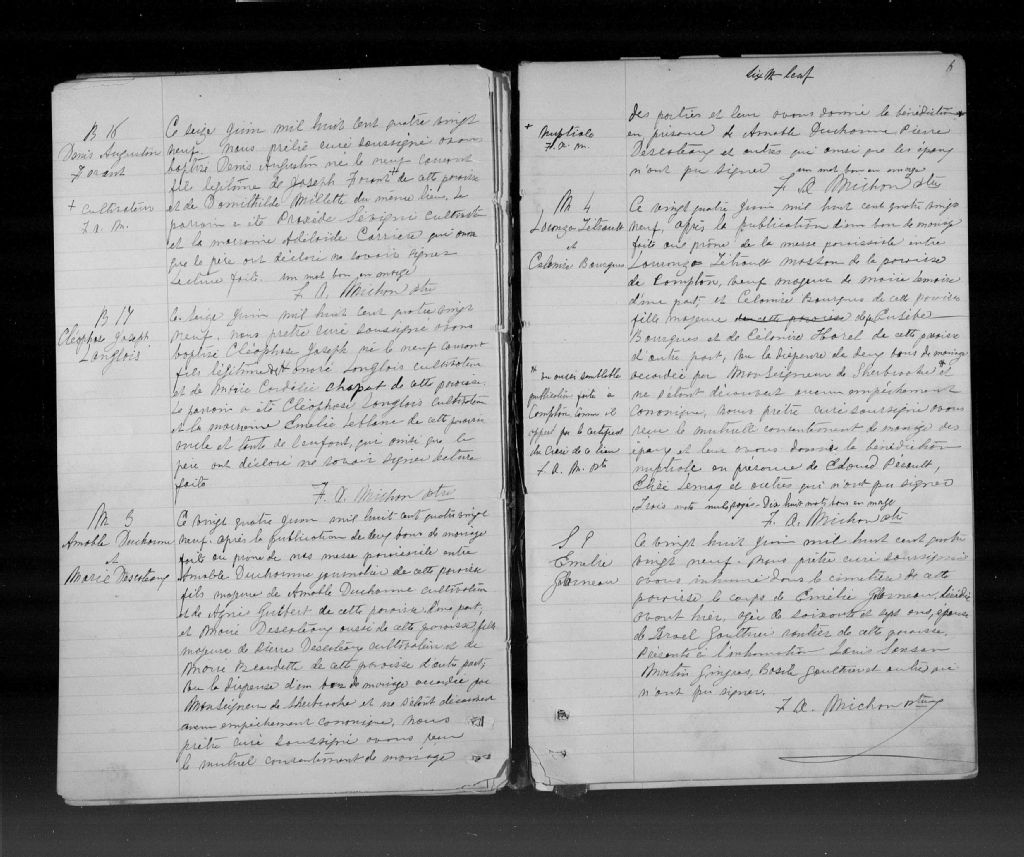 B 16
Denis Augustin
Forant
+ cultivateur
F. A. M.
Ce seize Juin mil huit cent quatre vingt
neuf. Nous prêtre curé soussigné avons
baptisé Denis Augustin né le neuf courant
fils légitime de Joseph Forant + de cette paroisse
et de Domithilde Millette du même lieu. Le
parrain a été Proxède Sévigni cultivateur
et la marraine Adélaide Carriere qui ainsi
que le père ont déclaré ne savoir signer
Lecture faite. un mot bon en marge
F. A. Michon ptre
B 17
Cléophas Joseph
Langlois
Ce seize Juin mil huit cent quatre vingt
neuf. nous prêtre curé soussigné avons
baptisé Cléophas Joseph né le neuf courant
fils légitime de André Langlois cultivateur
et de Marie Cordélie Chaput de cette paroisse.
Le parrain a été Cléophase Langlois cultivateur
et la marraine Emélie Leblanc de cette paroisse
oncle et tante de l'enfant, qui ainsi que le
père ont déclaré ne savoir signer lecture
faite
F. A. Michon ptre
M 3
Amable Duchanne
et
Marie Descoteaux
Ce vingt quatre Juin mil huit cent quatre vingt
neuf. après la publication de deux bans de mariage
faite au prone de nos messe paroissiale entre
Amable Duchanne journalier de cette paroisse
fils majeur de Amable Duchanne cultivateur
et de Agnè Guilbert de cette paroisse d'une part,
et Marie Descoteaux aussi de cette paroisse, fille
majeure de Pierre Descoteaux cultivateur et de
Marie Beaudette de cette paroisse d'autre part;
Vu la dispense d'un ban de mariage accordée par
Monseigneur de Sherbrooke et ne s'étant découvert
aucun empêchement canonique, nous
prêtre curé soussigné avons reçu
le mutuel consentement de mariage
six th leaf
6
+ nuptiale
F. A. M.
des parties et leur avons donné la bénédiction +
en présence de Amable Duchanne Pierre
Descoteaux et autres qui ainsi que les époux
n'ont pu signer un mot bon en marge
F. A. Michon ptre
M 4
Lorenzo Tétreault
et
Célanire Bourgues
Ce vingt quatre Juin mil huit cent quatre vingt
neuf, après la publication d'un ban de mariage
faite au prône de la messe paroissiale entre
Lorenzo Tétrault de la paroisse
de Compton, veuf majeur de Marie Lemaire
d'une part, et Célanire Bourgues de cette paroisse
fille majeure de cette paroisse de Eusèbe
Bourgues et de Célénire Harel de cette paroisse
d'autre part, Vu la dispense de deux bans de mariage
accordée par Monseigneur de Sherbrooke * et
ne s'étant découvert aucun empêchement
canonique, nous prêtre curé soussigné avons
reçu le mutuel consentement de mariage des
époux et leur avons donné la bénédiction
nuptiale en présence de Edouard Pérault,
Elisé Lemay et autres qui n'ont pu signer
Trois mots nuls rayés. Dix huit mots bons en marge
F. A. Michon ptre
* vu aussi semblable
publication faite à
Compton comme il
appert par le certificat
du Curé de ce lieu
F. A. M. ptre
S P
Emélie
Garneau
Ce vingt huit Juin mil huit cent quatre
vingt neuf. Nous prêtre curé soussigné
avons inhumé dans le cimetière de cette
paroisse le corps de Emélie Garneau, décédée
avant hier, agée de soixante et sept ans, épouse
de Israel Gauthier rentier de cette paroisse,
Présents à l'inhumation Louis
Martin Gingras, Basile Gauthier et autres qui
n'ont pu signer.
F. A. Michon ptre